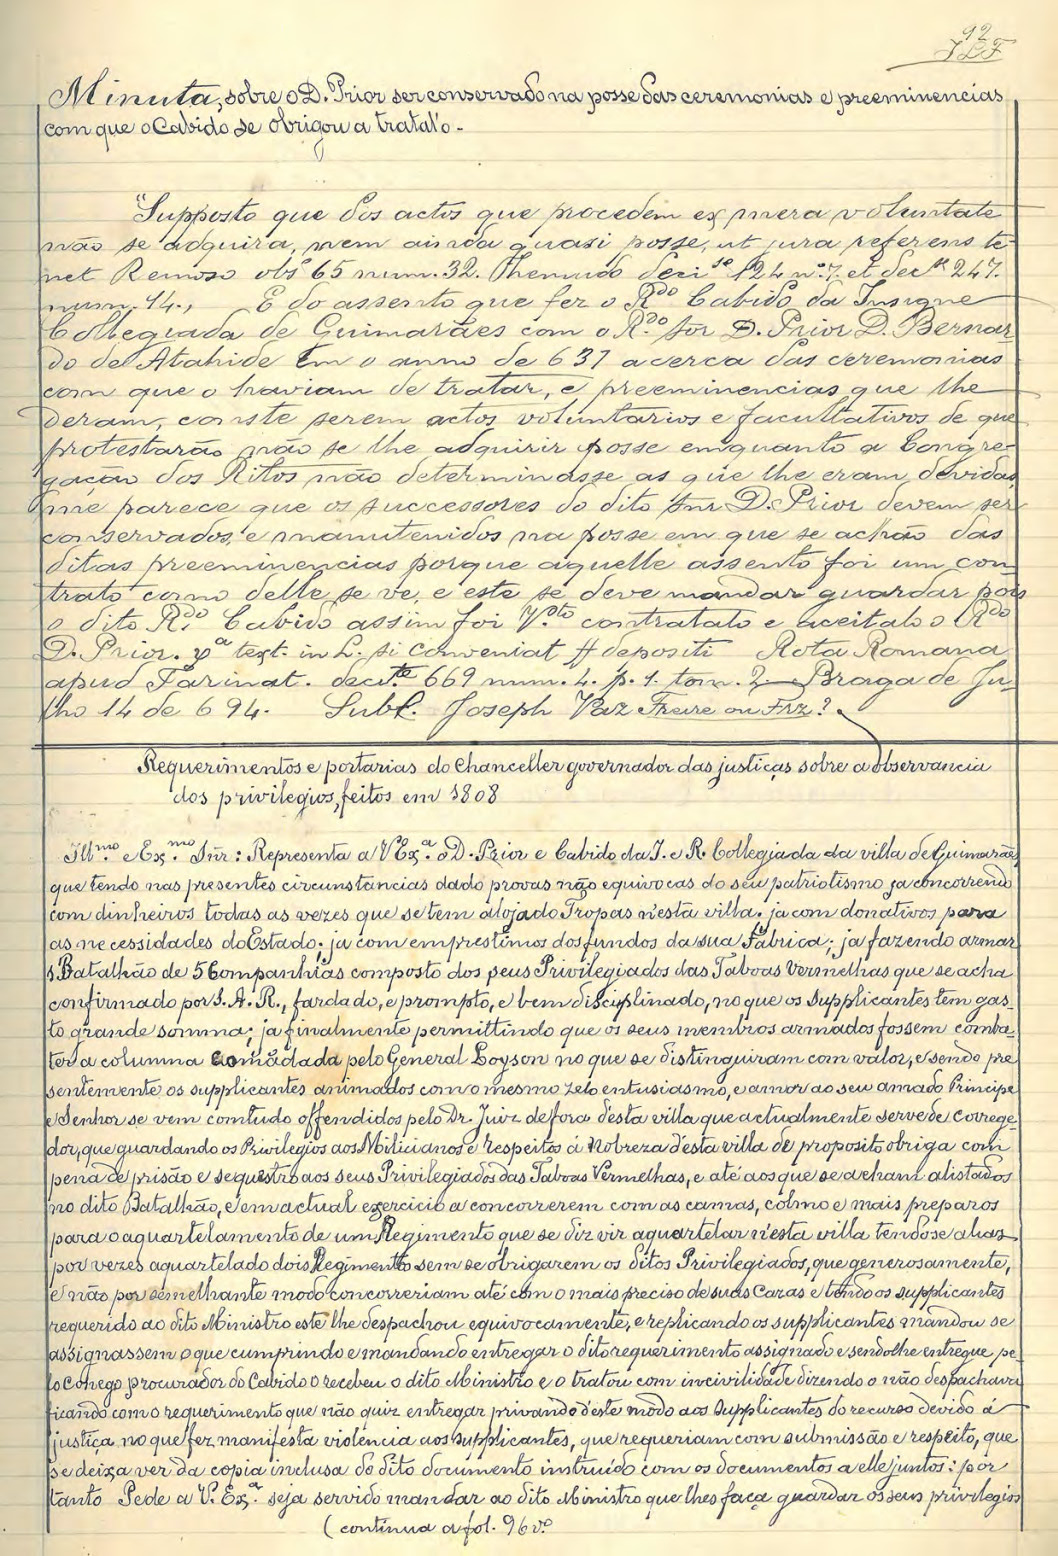 92
JLF
Minuta, sobre o D. Prior ser conservado na posse das ceremonias e preeminencias
com que o Cabido se obrigou a tratal'o -
"Supposto que dos actos que procedem ex mera voluntate
não se adquira, nem ainda quasi posse, ut jura referens te-
net Remoso obs 65 num. 32. Themudo deci se 124 nº 7. et dec 247.
num. 14., E do assento que fez o Rdo Cabido da Insigne
Collegiada de Guimarães com o Rdo Snr D. Prior D. Bernar
do de Atahide em o anno de 637 acerca das ceremonias
com que o haviam de tratar, e preeminencias que lhe
deram, conste serem actos voluntarios e facultativos de que
protestarão não se lhe adquirir posse emquanto a Congre-
gação dos Ritos não determinasse as que lhe eram devidas,
me parece que os successores do dito Snr D. Prior devem ser
conservados, e manutenidos na posse em que se achão das
ditas preeminencias porque aquelle assento foi um con-
trato como delle se ve, e este se deve mandar guardar pois
o dito Rdo Cabido assim foi contratalo e aceitalo o Rdo
D. Prior. text. in L. si conveniat ff depositi Rota Romana
apud Farinat. 669 num. 4. p. 1. tom. 2 Braga de Ju-
lho 14 de 694. Subf. Joseph Vaz Freire ou Frz?
Requerimentos e portarias do Chanceller governador das justiças sobre a observancia
dos privilegios, feitos em 1808
Illmo e Exmo Snr: Representa a V Exa o D. Prior e Cabido da I. e R. Collegiada da villa de Guimarães,
que tendo nas presentes circunstancias dado provas não equivocas do seu patriotismo ja concorrendo
com dinheiros todas as vezes que se tem alojado Tropas n'esta villa; ja com donativos para
as necessidades do Estado; ja com emprestimos dos fundos da sua Fabrica; ja fazendo armar
1 Batalhão de 5 Companhias composto dos seus Privilegiados das Taboas Vermelhas que se acha
confirmado por S. A. R., fardado, e prompto, e bem disciplinado, no que os Supplicantes tem gas-
to grande somma; ja finalmente permittindo que os seus membros armados fossem comba-
ter a columna comādada pelo General Loyson no que se distinguiram com valor, e sendo pre
sentemente os supplicantes animados com o mesmo zelo entusiasmo, e amor ao seu amado Principe
e Senhor se vem comtudo offendidos pelo Dr. Juiz de fora d'esta villa que actualmente serve de correge-
dor, que guardando os Privilegios aos Milicianos e respeitos á Nobreza d'esta villa de proposito obriga com
pena de prisão e sequestro aos seus Privilegiados das Taboas Vermelhas, e até aos que se acham alistados
no dito Batalhão, e em actual exercicio a concorrerem com as camas, colmo e mais preparos
para o aquartelamento de um Regimento que se diz vir aquartelar n'esta villa tendose alias
por vezes aquartelado dois Regimento sem se obrigarem os ditos Privilegiados, que generosamente,
e não por semelhante modo concorreriam até com o mais preciso de suas Cazas e tendo os supplicantes
requerido ao dito Ministro este lhe despachou equivocamente, e replicando os supplicantes mandou se
assignassem o que cumprindo e mandando entregar o dito requerimento assignado e sendolhe entregue pe-
lo Conego procurador do Cabido o recebeu o dito Ministro e o tratou com incivilidade dizendo o não despachava
ficando com o requerimento que não quiz entregar privando d'este modo aos Supplicantes do recurso devido á
justiça no que fez manifesta violencia aos Supplicantes, que requeriam com submissão e respeito, que
se deixa ver da copia inclusa do dito documento instruido com os documentos a elle juntos: por
tanto Pede a V. Exa. seja servido mandar ao dito Ministro que lhes faça guardar os seus privilegios
(continua a fol. 96 vº